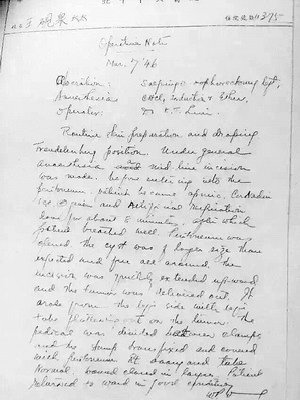 王硯果
275
Operative Note
Mar. 7 '46
Operation: Salpingo-oophorectomy left,
Anaesthesia: Ethcl. induction & Ether,
Operator: Dr K.T. 
Routine skin preparation and draping
Trendelenburg position. Under general
anaesthesia mid-line incision
was made. before entering into the
peritoneum patient became apneic.
and artificial respiration
for about 5 minutes, after which
patient breathed well. Peritoneum was
opened the cyst was of larger size than
expected and free all around the
incision was quickly extended upward
and the tumor was delivered out. It
arose from the left side with left
tube on the tumor. The
pedical was divided between clamps
and the stump transfixed and covered
with peritoneum Rt ovary and tube
Normal. wound closed in layers. Patient
returned to ward in good condition